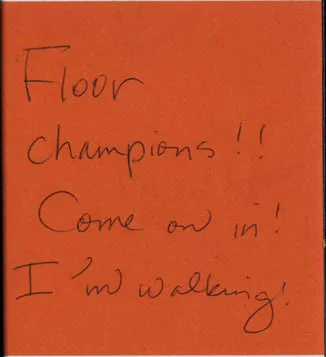 Floor
champions!!
Come on in!
I'm walking!